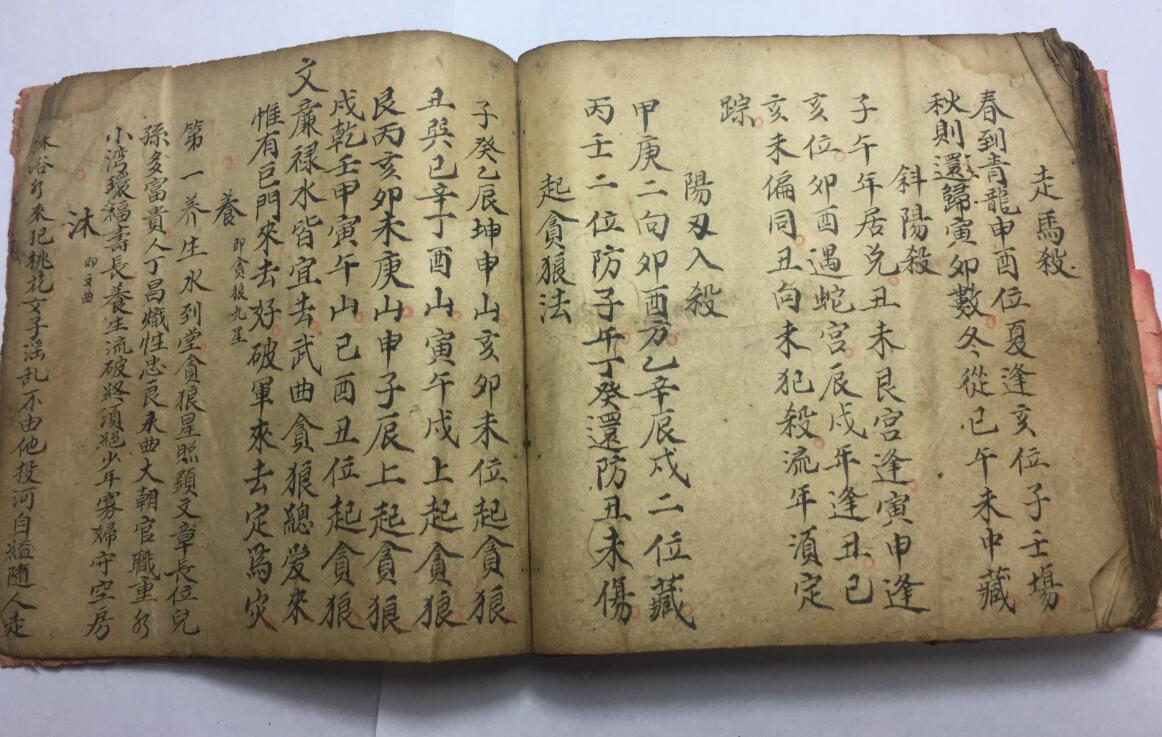 走馬殺
春到青龍申酉位夏逢亥位子壬塲
秋則還歸寅卯數冬從巳午未中藏
斜陽殺
子午年居兌丑未艮宮逢寅申逢
亥位卯酉遇蛇宮辰戌年逢丑巳
亥未偏同丑向未犯殺流年須定
踪
陽刃入殺
甲庚二向卯酉方乙辛辰戌二位藏
丙壬二位防子午丁癸還防丑未傷
起貪狼法
子癸乙辰坤申山亥卯未位起貪狼
丑巽巳辛丁酉山寅午戌上起貪狼
艮丙亥卯未庚山申子辰上起貪狼
戌乾壬甲寅午山巳酉丑位起貪狼
文廉禄水皆宜去武曲貪狼總愛來
惟有巨門來去好破軍來去定爲灾
養 即貪狼九星
第一养生水到堂貪狼星照顕文章長位兒
孫多富貴人丁昌熾性忠良水曲大朝官職重水
小湾環福壽長養生流破終須絕少年寡婦守空房
沐 即文曲
沐浴水來犯桃花女子淫乱不由他投河自縊隨人走